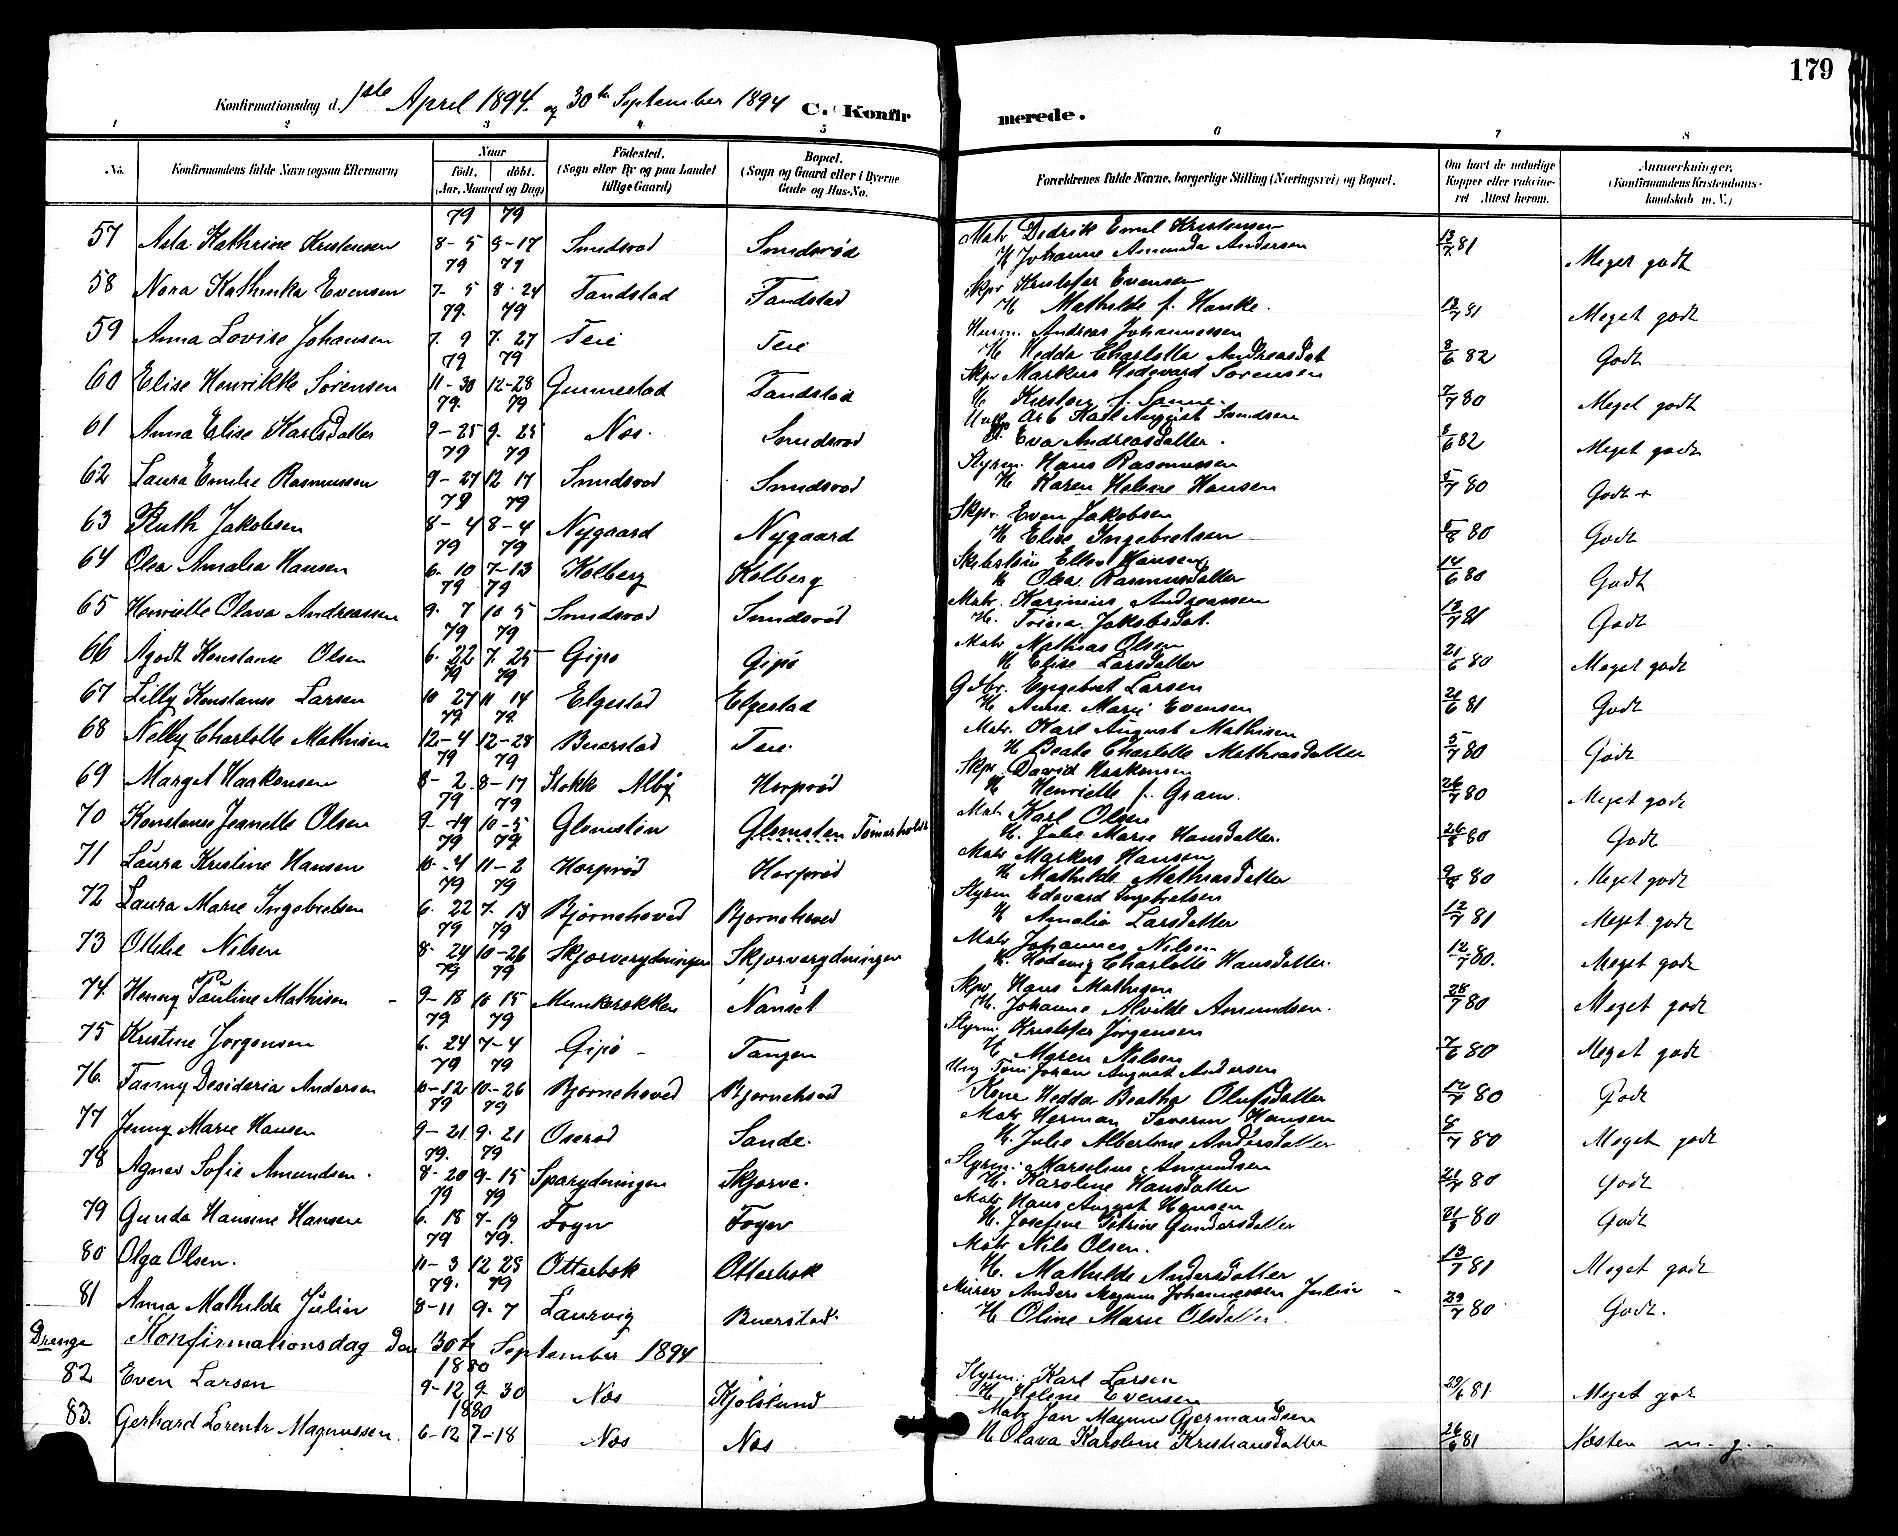 179
Konfirmationsdag d. 1ste April 1894. og 30te September 1894 C. Konfirmerede.
1 2 3 4 5 6 7 8
No. Konfirmandens fulde Navn (ogsaa Efternavn) Naar Födt. döbt. (Aar, Maaned og Dag) Födested. (Sogn eller By og paa Landet tillige Gaard) Bopæl. (Sogn og Gaard eller i Byerne Gade og Hus-No. Forældrenes fulde Navne, borgerlige Stilling (Næringsvei) og Bopæl. Om havt de naturlige Kopper eller vaksineret Attest herom. Anmærkninger. (Konfirmandens Kristendomskundskab m. V.)
79 79
57 Asta Kathrine Kristensen 8-5 8-17 Smidsrod Smidsrød Matr Didrik Emil Kristensen H Johanne Amunda Andersen 13/7 81 Meget godt
79 79
58 Nora Kathinka Evensen 7-5 8-24 Tandstad Tandstad Skpr Kristofer Evensen H Mathilde f. Hanke. 13/7 81 Meget godt
79. 79
59 Anna Lovise Johansen 7. 9 7. 27 Teie Teie Andreas Johannessen H Hedda Charlotta Andreasdat 8/6 82 Godt
79 79
60 Elise Henrikke Sørensen 11-30 12-28 Gunnestad Tandstad Skpr Markus Hedevard Sørensen H Kirsten f. Sanne. 7/7 80 Meget godt
79. 79
61 Anna Elise Karlsdatter 9-25 9. 25 Nes. Smidsrod Arb Karl August H. Eva Andreasdatter. 8/6 82 Meget godt
79 79
62 Laura Emilie Rasmussen 9-27 12 17 Smidsrod Smidsrod Styrm. Hans Rasmussen H Karen Helene Hansen 5/7 80 Godt +
79 79
63 Ruth Jakobsen 8-4 8-4 Nygaard Nygaard Skpr. Even Jakobsen H Elise Ingebretsen 80 Godt
79 79
64 Olea Amalia Hansen 6. 10 7-13 Kolberg Kolberg Hansen H Olea Rasmusdatter 14/6 80 Godt
79 79
65 Henriette Olava Andreassen 9. 7 10 5 Smidsrod Smidsrød Matr. Karinius Andreassen H. Trina Jakobsdat. 13/7 81 Godt
79 79
66 Agodt Konstanse Olsen 6. 22 7. 25 Gipø Gipø Matr Mathias Olsen H Elise Larsdatter 21/6 80 Meget godt
79 79
67 Lilly Konstanse Larsen 10 27 11 14 Elgestad Elgestad Gdbr. Engebret Larsen H Anne Marie Evensen 21/6 81 Godt
79 79.
68 Nelly Charlotte Mathisen 12-4 12-28 Buerstad Teie. Matr. Karl August Mathisen H Beate Charlotte Mathiasdatter 5/7 80 Godt
79 79
69 Marget Haakonsen 8-2. 8-17 Stokke Alby Horprød Skpr. David Haakonsen H Henriette f. Gram. 26/7 80 Meget godt
79 79
70 Konstanse Jeanette Olsen 9-19 10-5 Glomsten Glomsten Tömerholdt Matr Karl Olsen H. Julie Marie Hansdatter. 26/8 80 Godt
79 79
71 Laura Kristine Hansen 10-4 11-2 Horprød Horprød Matr Markus Hansen H Mathilde Mathiasdatter 80 Meget godt
79 79
72 Laura Marie Ingebretsen 6. 22 7. 13 Bjørnehoved Bjørnehoved Styrm Edevard Ingebretsen H Amalia Larsdatter 12/7 81 Meget godt
79 79
73 Otilie Nilsen 8. 24 10-26 Skjærverydningen Skjærverydningen Matr Johannes Nilsen H. Hedevig Charlotte Hansdatter. 12/7 80. Meget godt
79 79
74. Henny Pauline Mathisen 9-18 10 15 Munkerekken Nanset Skpr. Hans Mathisen H. Johanne Alvilde Amundsen. 28/7 80 Meget godt
79 79
75 Kristine Jorgensen 6. 24 7-4 Gipø Tangen Styrm. Kristofer Jörgensen H Maren Nilsen 7/6 80 Meget godt
79 79
76. Fanny Desideria Andersen 10-12 10-26 Bjørnehoved Bjørnehoved Ung Töm Johan August Andersen Kone Hedda Beathe Olufsdatter 12/7 80 Godt
79 79
77 Jenny Marie Hansen 9-21 9. 21 Oserød Sande. Matr Herman Severin Hansen H. Julie Albertine Andersdatter 8/7 80 Meget godt
79. 79
78 Agnes Sofie Amundsen. 8-20 9-15 Sparydningen Skjærve. Styrm. Marselius Amundsen H. Karoline Hansdatter 80 Godt
79 79
79 Gunda Hansine Hansen 6. 18 7-19 Fogn Fogn Matr Hans August Hansen H. Josefine Petrine Gundersdatter 21/8 80 Godt
79 79.
80 Olga Olsen. 11-3 12 28 Otterbek Otterbek Matr Nils Olsen. H. Mathilde Andersdatter 13/7 81 Meget godt
79. 79
81 Anna Mathilde Julin 8-11 9. 7 Laurvig Buerstad. Murer Anders Magnus Johannessen Julin H Oline Marie Olsdatter 29/7 80 Godt.
Drenge Konfirmationsdag den 30te September 1894
1880
82 Even Larsen 9-12 9. 30 Næs Kjølslund Styrm. Karl Larsen H Helene Evensen 29/6 81 Meget got
1880
83. Gerhard Lorents Magnussen. 6-12 7-18 Næs Næs Matr Jan Magnus Gjermundsen H Olava Karoline Kristiansdatter 26/6 81 Næsten m. g.